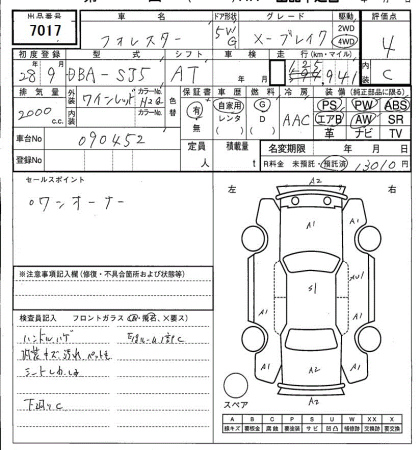 出品番号 7017
車名 フォレスター
ドア形状 5W G
グレード X-ブレイク
駆動 2WD 4WD
評価点 4
内装 C
初度登録 28年9月
型式 DBA-SJ5
シフト AT
車検 年 月
走行(km・マイル)
排気量 2000 c.c.
外装 ワインレッド カラーNo. H2Q
内装 カラーNo.
色替
保証書 有 無
車歴 自家用 レンタ
燃料 G D
冷房 AAC
装備(純正部品に限る)
PS PW ABS
エアB AW SR
革 ナビ TV
車台No 090452
登録No
定員 人
積載量 t
名変期限 年 月 日
R料金 未預託・預託済 13010円
セールスポイント
ワンオーナー
※注意事項記入欄(修復・不具合箇所および状態等)
検査員記入 フロントガラス(A・飛石、×要ス)
ハンドルハゲ
内装キズ汚れ
下廻りC
左 右
A2
A1
A1
A1
S1
A1
A1
A1
A2
スペア
A B C P S U W X XX
線キズ 要板金 腐蝕 要塗装 サビ 凹凸 補修跡 交換跡 要交換